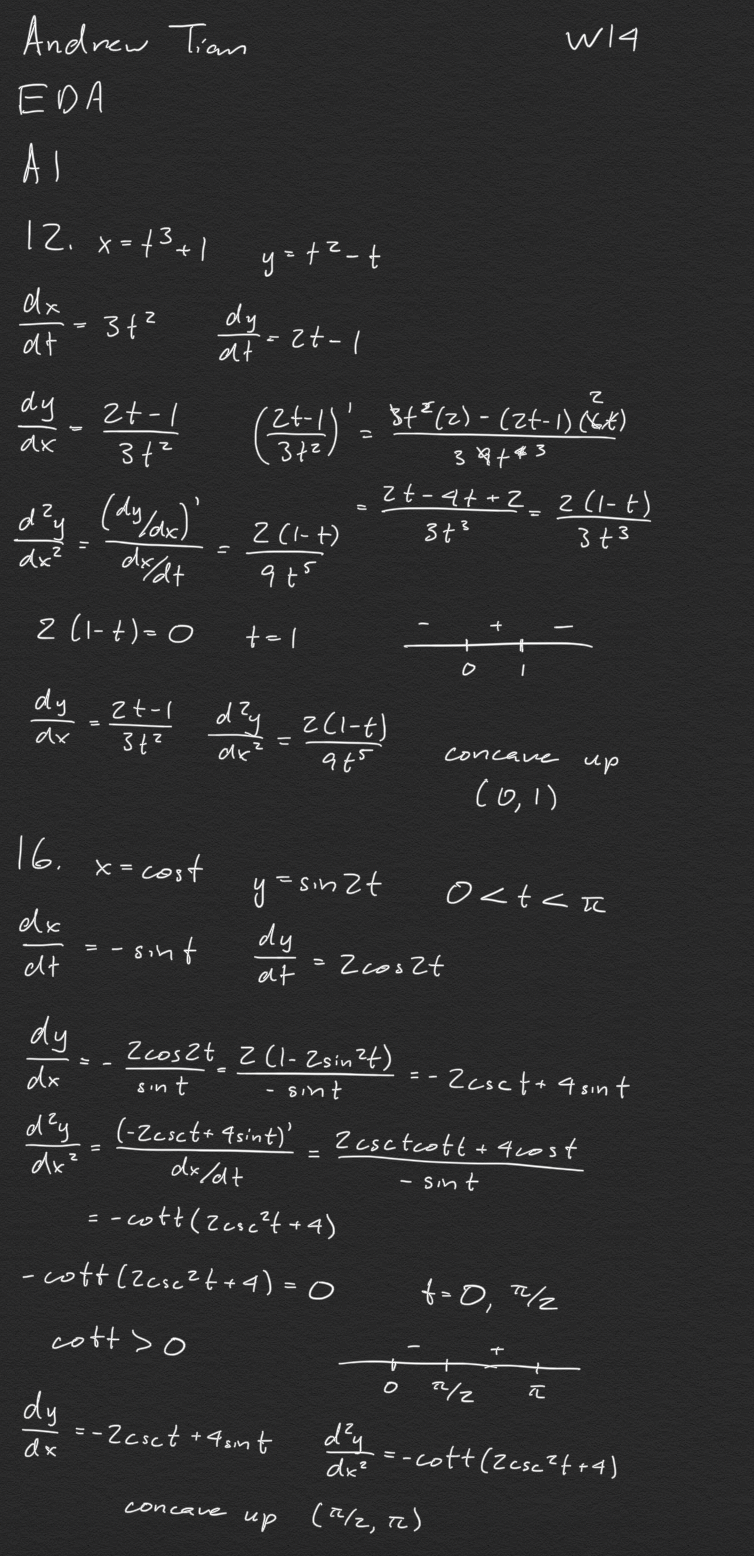 Andrew Tian W14
EDA
A1
12. x = t³ + 1 y = t² - t
dx/dt = 3t² dy/dt = 2t - 1
dy/dx = (2t-1)/(3t²) ((2t-1)/(3t²))' = (3t²(2) - (2t-1)(6t))/(9t⁴)
= (2t - 4t + 2)/(3t³) = 2(1-t)/(3t³)
d²y/dx² = (dy/dx)'/(dx/dt) = 2(1-t)/(9t⁵)
2(1-t) = 0 t = 1 - + -
0 1
dy/dx = (2t-1)/(3t²) d²y/dx² = 2(1-t)/(9t⁵) concave up
(0, 1)
16. x = cost y = sin2t 0 < t < π
dx/dt = - sint dy/dt = 2cos2t
dy/dx = - 2cos2t/sint = 2(1-2sin²t)/(-sint) = - 2csct + 4sint
d²y/dx² = (-2csct + 4sint)'/(dx/dt) = (2csctcott + 4cost)/(-sint)
= -cott(2csc²t + 4)
-cott(2csc²t + 4) = 0 t = 0, π/2
cott > 0 - +
0 π/2 π
dy/dx = -2csct + 4sint d²y/dx² = -cott(2csc²t + 4)
concave up (π/2, π)